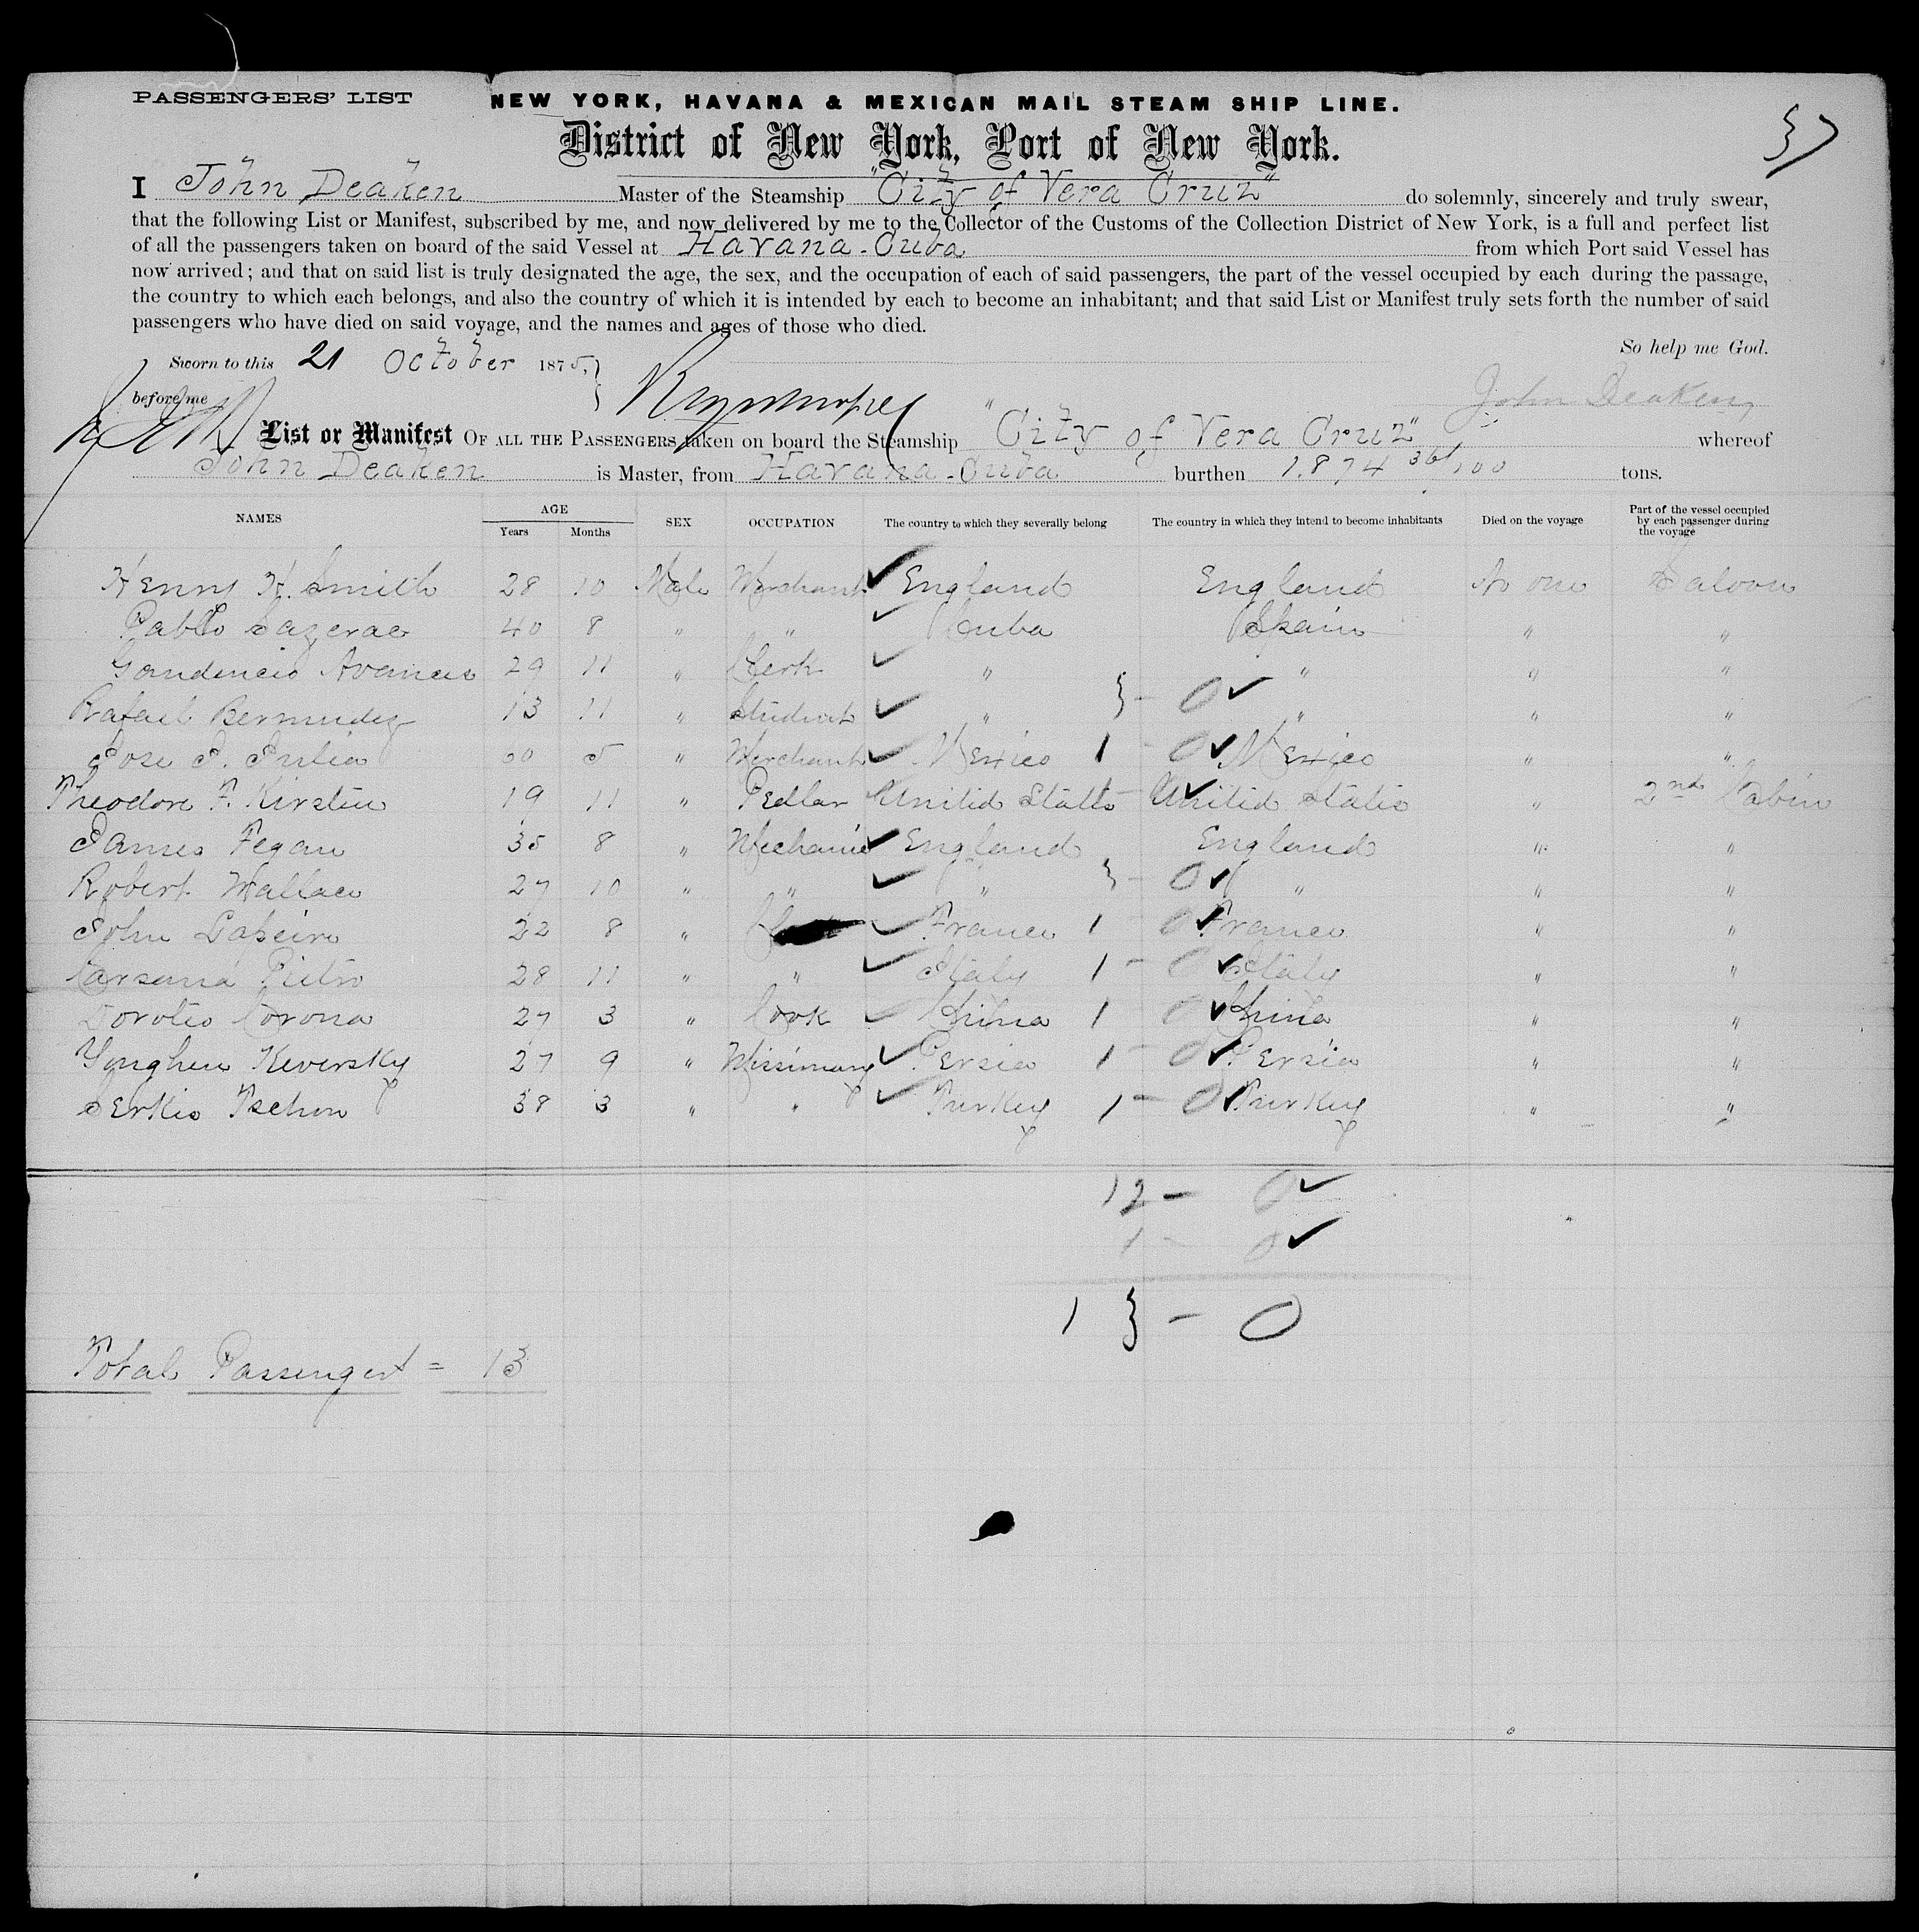 PASSENGERS' LIST
NEW YORK, HAVANA & MEXICAN MAIL STEAM SHIP LINE.
37
District of New York, Port of New York.
I John Deaken Master of the Steamship "City of Vera Cruz" do solemnly, sincerely and truly swear,
that the following List or Manifest, subscribed by me, and now delivered by me to the Collector of the Customs of the Collection District of New York, is a full and perfect list
of all the passengers taken on board of the said Vessel at Havana - Cuba from which Port said Vessel has
now arrived; and that on said list is truly designated the age, the sex, and the occupation of each of said passengers, the part of the vessel occupied by each during the passage,
the country to which each belongs, and also the country of which it is intended by each to become an inhabitant; and that said List or Manifest truly sets forth the number of said
passengers who have died on said voyage, and the names and ages of those who died.
So help me God.
Sworn to this 21 October 1875,
before me John Deaken
List or Manifest OF ALL THE PASSENGERS taken on board the Steamship "City of Vera Cruz" whereof
John Deaken is Master, from Havana - Cuba burthen 1.874 36/100 tons.
NAMES AGE Years Months SEX OCCUPATION The country to which they severally belong The country in which they intend to become inhabitants Died on the voyage Part of the vessel occupied by each passenger during the voyage
Henry H. Smith 28 10 Male Merchant ✓ England England No one Saloon
Pablo Lazerac 40 8 " " ✓ Cuba Spain " "
Gaudencio Avances 29 11 " Clerk ✓ " " " "
Rafael Bermudez 13 11 " Student ✓ " 3 - 0 ✓ " " "
Jose J. Julia 5 " Merchant ✓ Mexico 1 - 0 ✓ Mexico " "
Theodore F. Kirstein 19 11 " Pedlar United States 1 - ✓ United States " 2nd Cabin
James Fegan 35 8 " Mechanic ✓ England England " "
Robert Wallace 27 10 " " ✓ " 3 - 0 ✓ " " "
John 22 8 " ✓ France 1 - 0 ✓ France " "
Carsana Pietro 28 11 " " ✓ Italy 1 - 0 ✓ Italy " "
Doroteo Corona 27 3 " Cook ✓ China 1 - 0 ✓ China " "
Yonghen Keversky 27 9 " Missionary ✓ Persia 1 - 0 ✓ Persia " "
Serkis Tschon 38 3 " " ✓ Turkey 1 - 0 ✓ Turkey " "
12 - 0 ✓
1 - 0 ✓
13 - 0
Total Passengers = 13